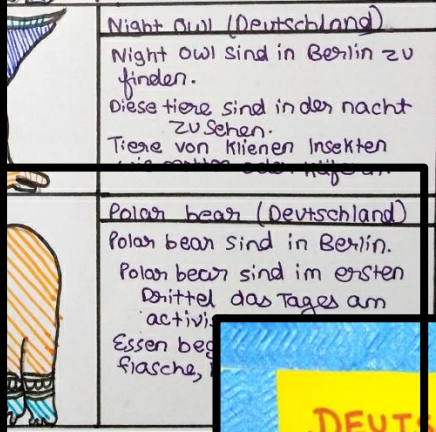 Night Owl (Deutschland)
Night Owl Sind in Berlin zu
finden.
Diese tiere sind in der nacht
zu Sehen.
Tiere von Klienen Insekten
Polar bear (Deutschland)
Polar bear Sind in Berlin.
Polar bear sind im ersten
Drittel das Tages am
Essen
flasche,